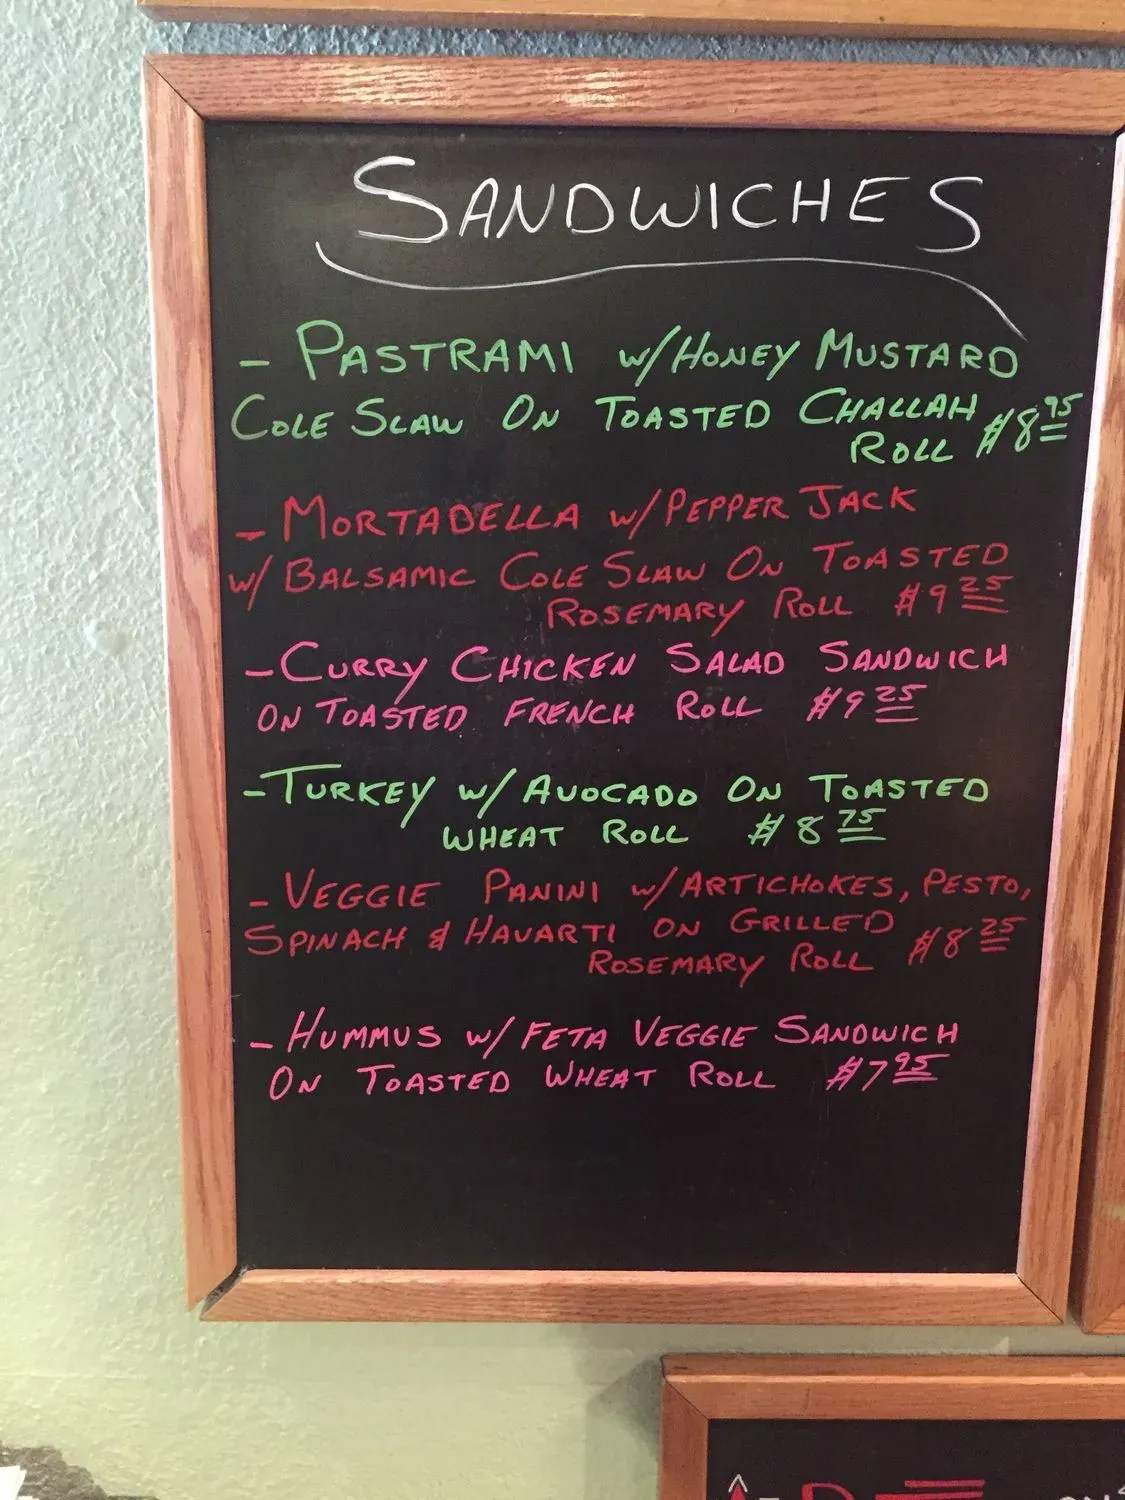 SANDWICHES
- PASTRAMI W/HONEY MUSTARD
COLE SLAW ON TOASTED CHALLAH
ROLL $8.95
- MORTADELLA W/PEPPER JACK
W/ BALSAMIC COLE SLAW ON TOASTED
ROSEMARY ROLL $9.25
- CURRY CHICKEN SALAD SANDWICH
ON TOASTED FRENCH ROLL $9.25
- TURKEY W/ AVOCADO ON TOASTED
WHEAT ROLL $8.75
- VEGGIE PANINI W/ARTICHOKES, PESTO,
SPINACH & HAVARTI ON GRILLED
ROSEMARY ROLL $8.25
- HUMMUS W/ FETA VEGGIE SANDWICH
ON TOASTED WHEAT ROLL $7.95